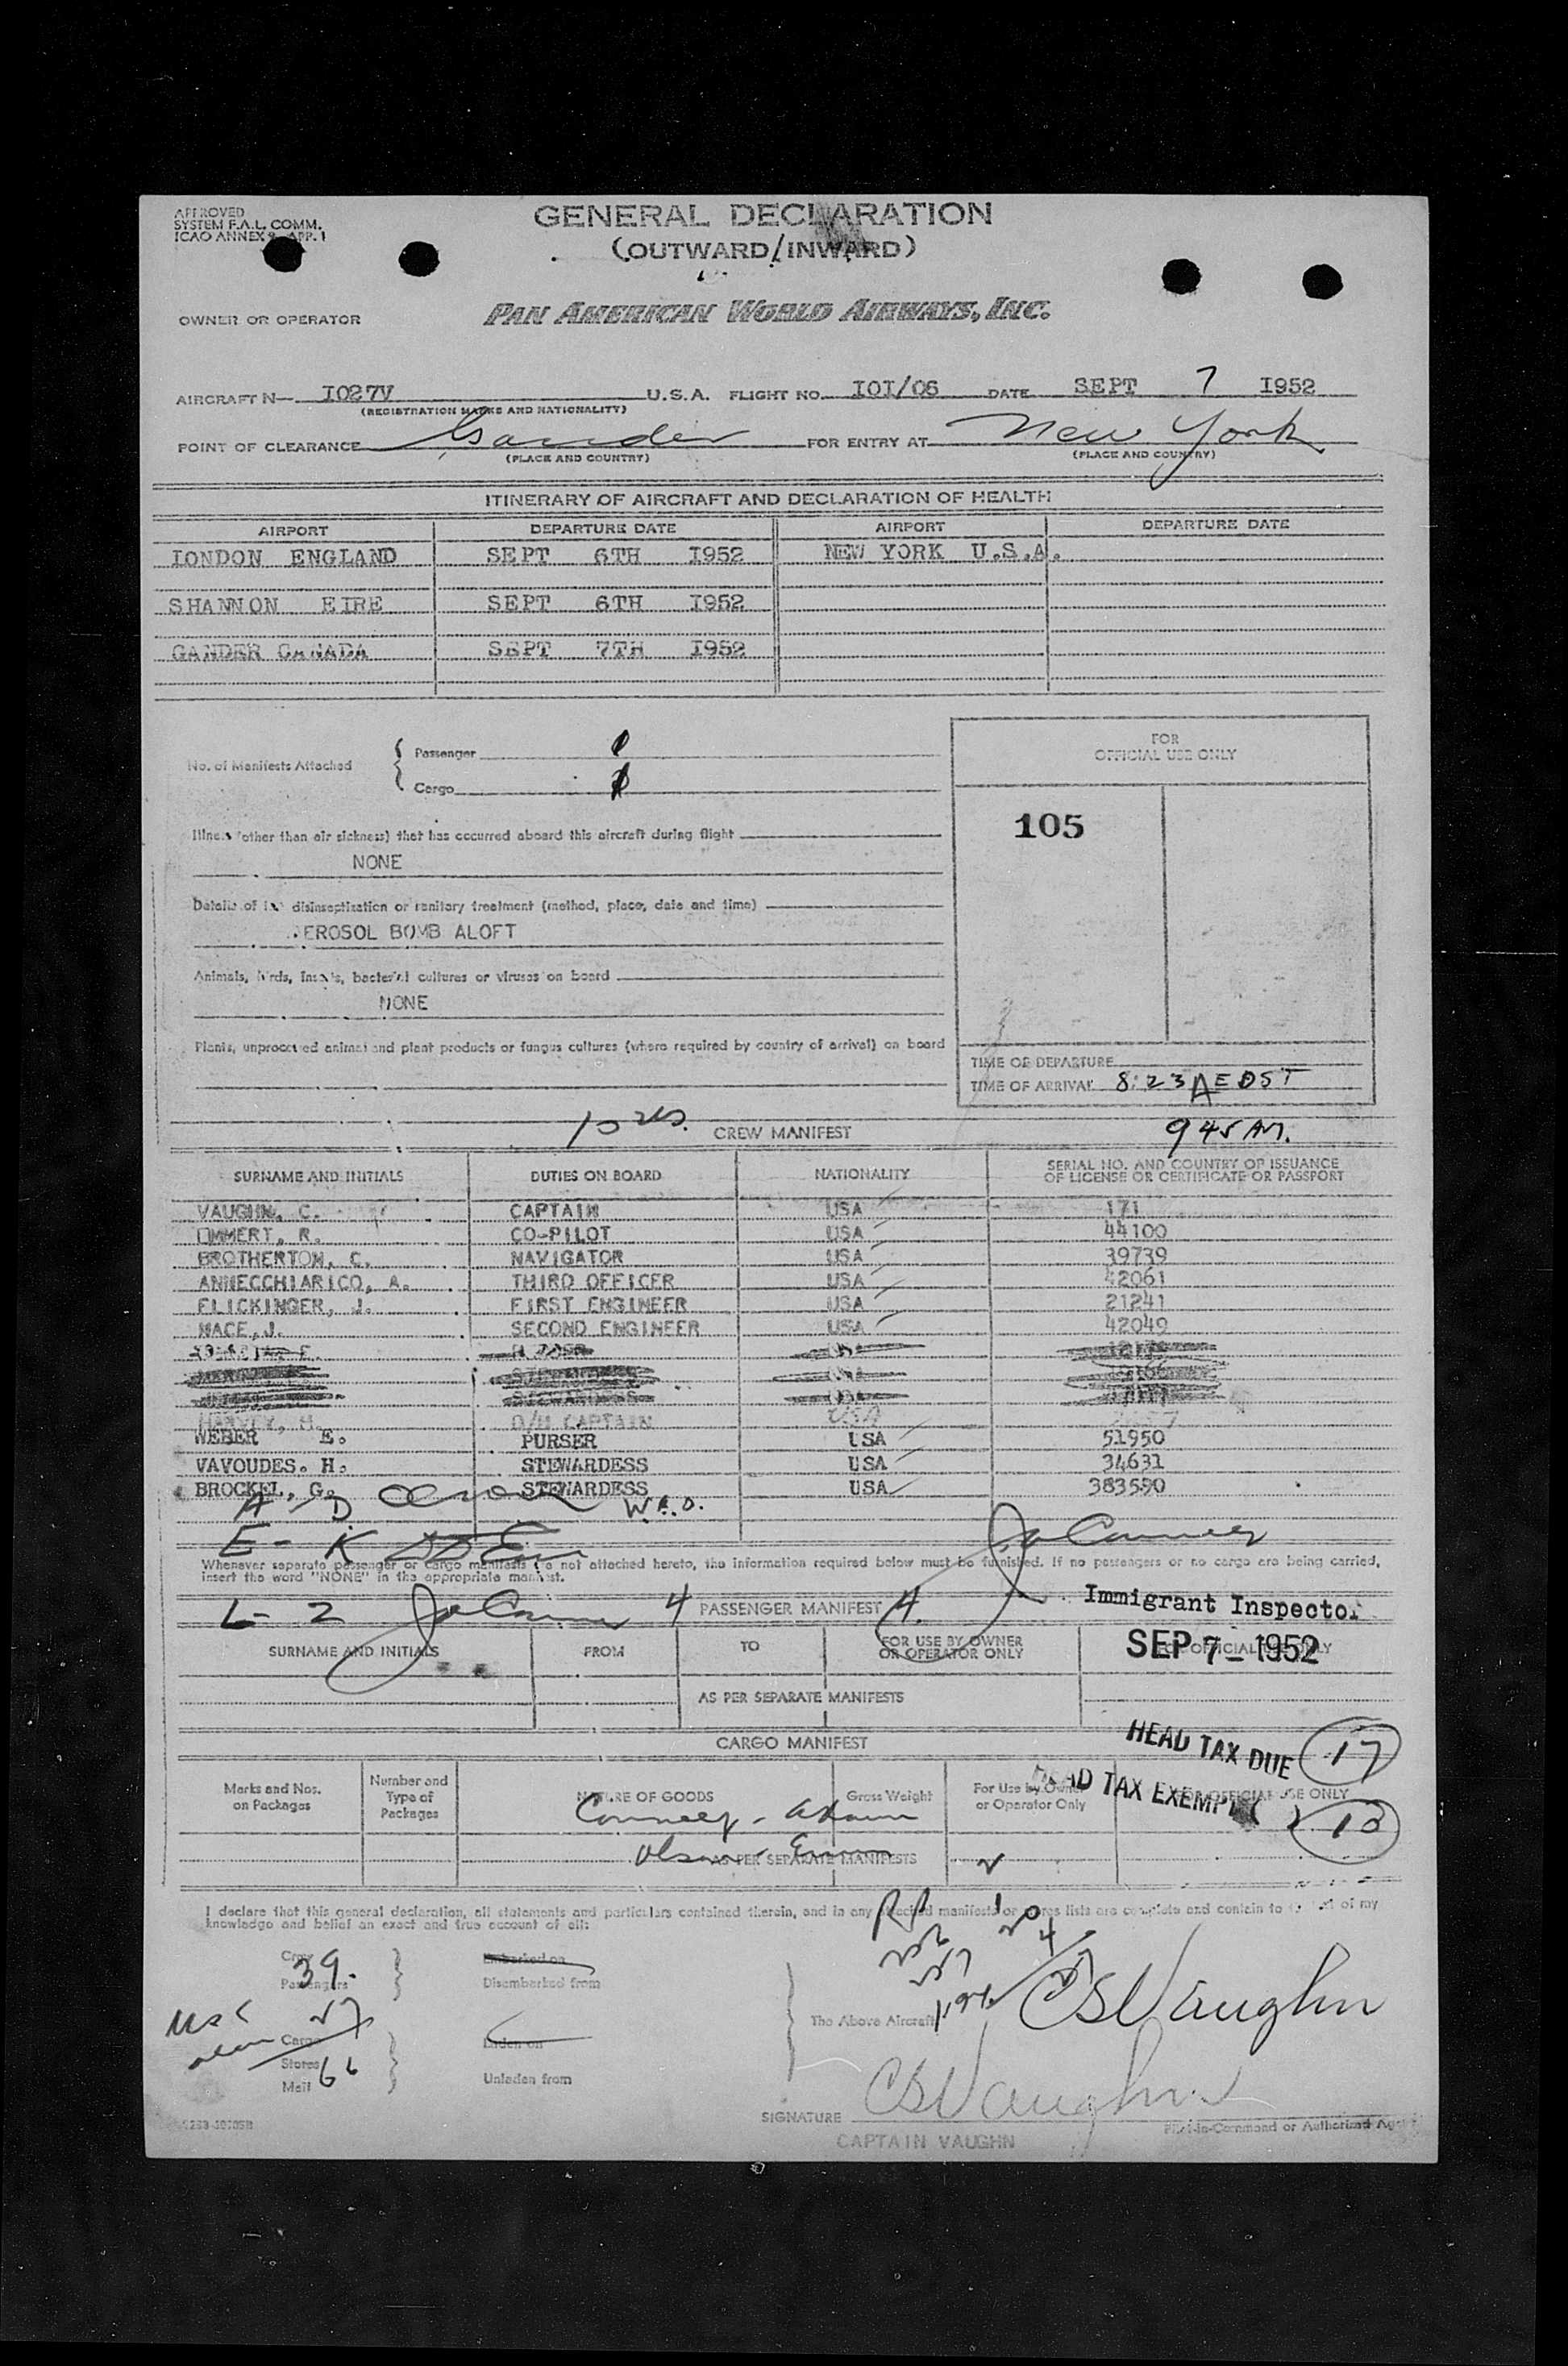 APPROVED
SYSTEM F.A.L. COMM.
ICAO ANNEX 9 APP. 1
GENERAL DECLARATION
(OUTWARD/INWARD)
OWNER OR OPERATOR PAN AMERICAN WORLD AIRWAYS, INC.
AIRCRAFT N— I027V U.S.A. FLIGHT NO. IOI/06 DATE SEPT 7 I952
(REGISTRATION MARKS AND NATIONALITY)
POINT OF CLEARANCE Gander FOR ENTRY AT New York
(PLACE AND COUNTRY) (PLACE AND COUNTRY)
ITINERARY OF AIRCRAFT AND DECLARATION OF HEALTH
AIRPORT DEPARTURE DATE AIRPORT DEPARTURE DATE
LONDON ENGLAND SEPT 6TH I952 NEW YORK U.S.A.
SHANNON EIRE SEPT 6TH I952
GANDER CANADA SEPT 7TH I952
FOR
OFFICIAL USE ONLY
No. of Manifests Attached { Passenger
Cargo
105
Illness (other than air sickness) that has occurred aboard this aircraft during flight
NONE
Details of last disinsectization or sanitary treatment (method, place, date and time)
AEROSOL BOMB ALOFT
Animals, birds, insects, bacterial cultures or viruses on board
NONE
Plants, unprocessed animal and plant products or fungus cultures (where required by country of arrival) on board
TIME OF DEPARTURE
TIME OF ARRIVAL 8:23 A EDST
CREW MANIFEST 9 45 AM.
SURNAME AND INITIALS DUTIES ON BOARD NATIONALITY SERIAL NO. AND COUNTRY OF ISSUANCE
OF LICENSE OR CERTIFICATE OR PASSPORT
VAUGHN, C. CAPTAIN USA 171
EMMERT, R. CO-PILOT USA 44100
BROTHERTON, C. NAVIGATOR USA 39739
ANNECCHIARICO, A. THIRD OFFICER USA 42061
FLICKINGER, J. FIRST ENGINEER USA 21241
MACE, J. SECOND ENGINEER USA 42049
HARVEY, H. D/H CAPTAIN USA
WEBER E. PURSER USA 51950
VAVOUDES. H. STEWARDESS USA 34631
BROCKEL, G. STEWARDESS USA 383590
A - D
E - K
Whenever separate passenger or cargo manifests are not attached hereto, the information required below must be furnished. If no passengers or no cargo are being carried,
insert the word "NONE" in the appropriate manifest.
L - Z 4 PASSENGER MANIFEST 4. Immigrant Inspector
SURNAME AND INITIALS FROM TO FOR USE BY OWNER
OR OPERATOR ONLY
FOR OFFICIAL USE ONLY
SEP 7 - 1952
AS PER SEPARATE MANIFESTS
HEAD TAX DUE 17
CARGO MANIFEST
HEAD TAX EXEMPT 13
Marks and Nos.
on Packages
Number and
Type of
Packages
NATURE OF GOODS Gross Weight For Use by Owner
or Operator Only
FOR OFFICIAL USE ONLY
AS PER SEPARATE MANIFESTS
I declare that this general declaration, all statements and particulars contained therein, and in any attached manifests or stores lists are complete and contain to the best of my
knowledge and belief an exact and true account of all:
Crew
Passengers 39.
Embarked on
Disembarked from
The Above Aircraft
CSVaughn
Cargo
Stores
Mail
Laden on
Unladen from
CSVaughn
SIGNATURE
Pilot-in-Command or Authorized Agent
CAPTAIN VAUGHN